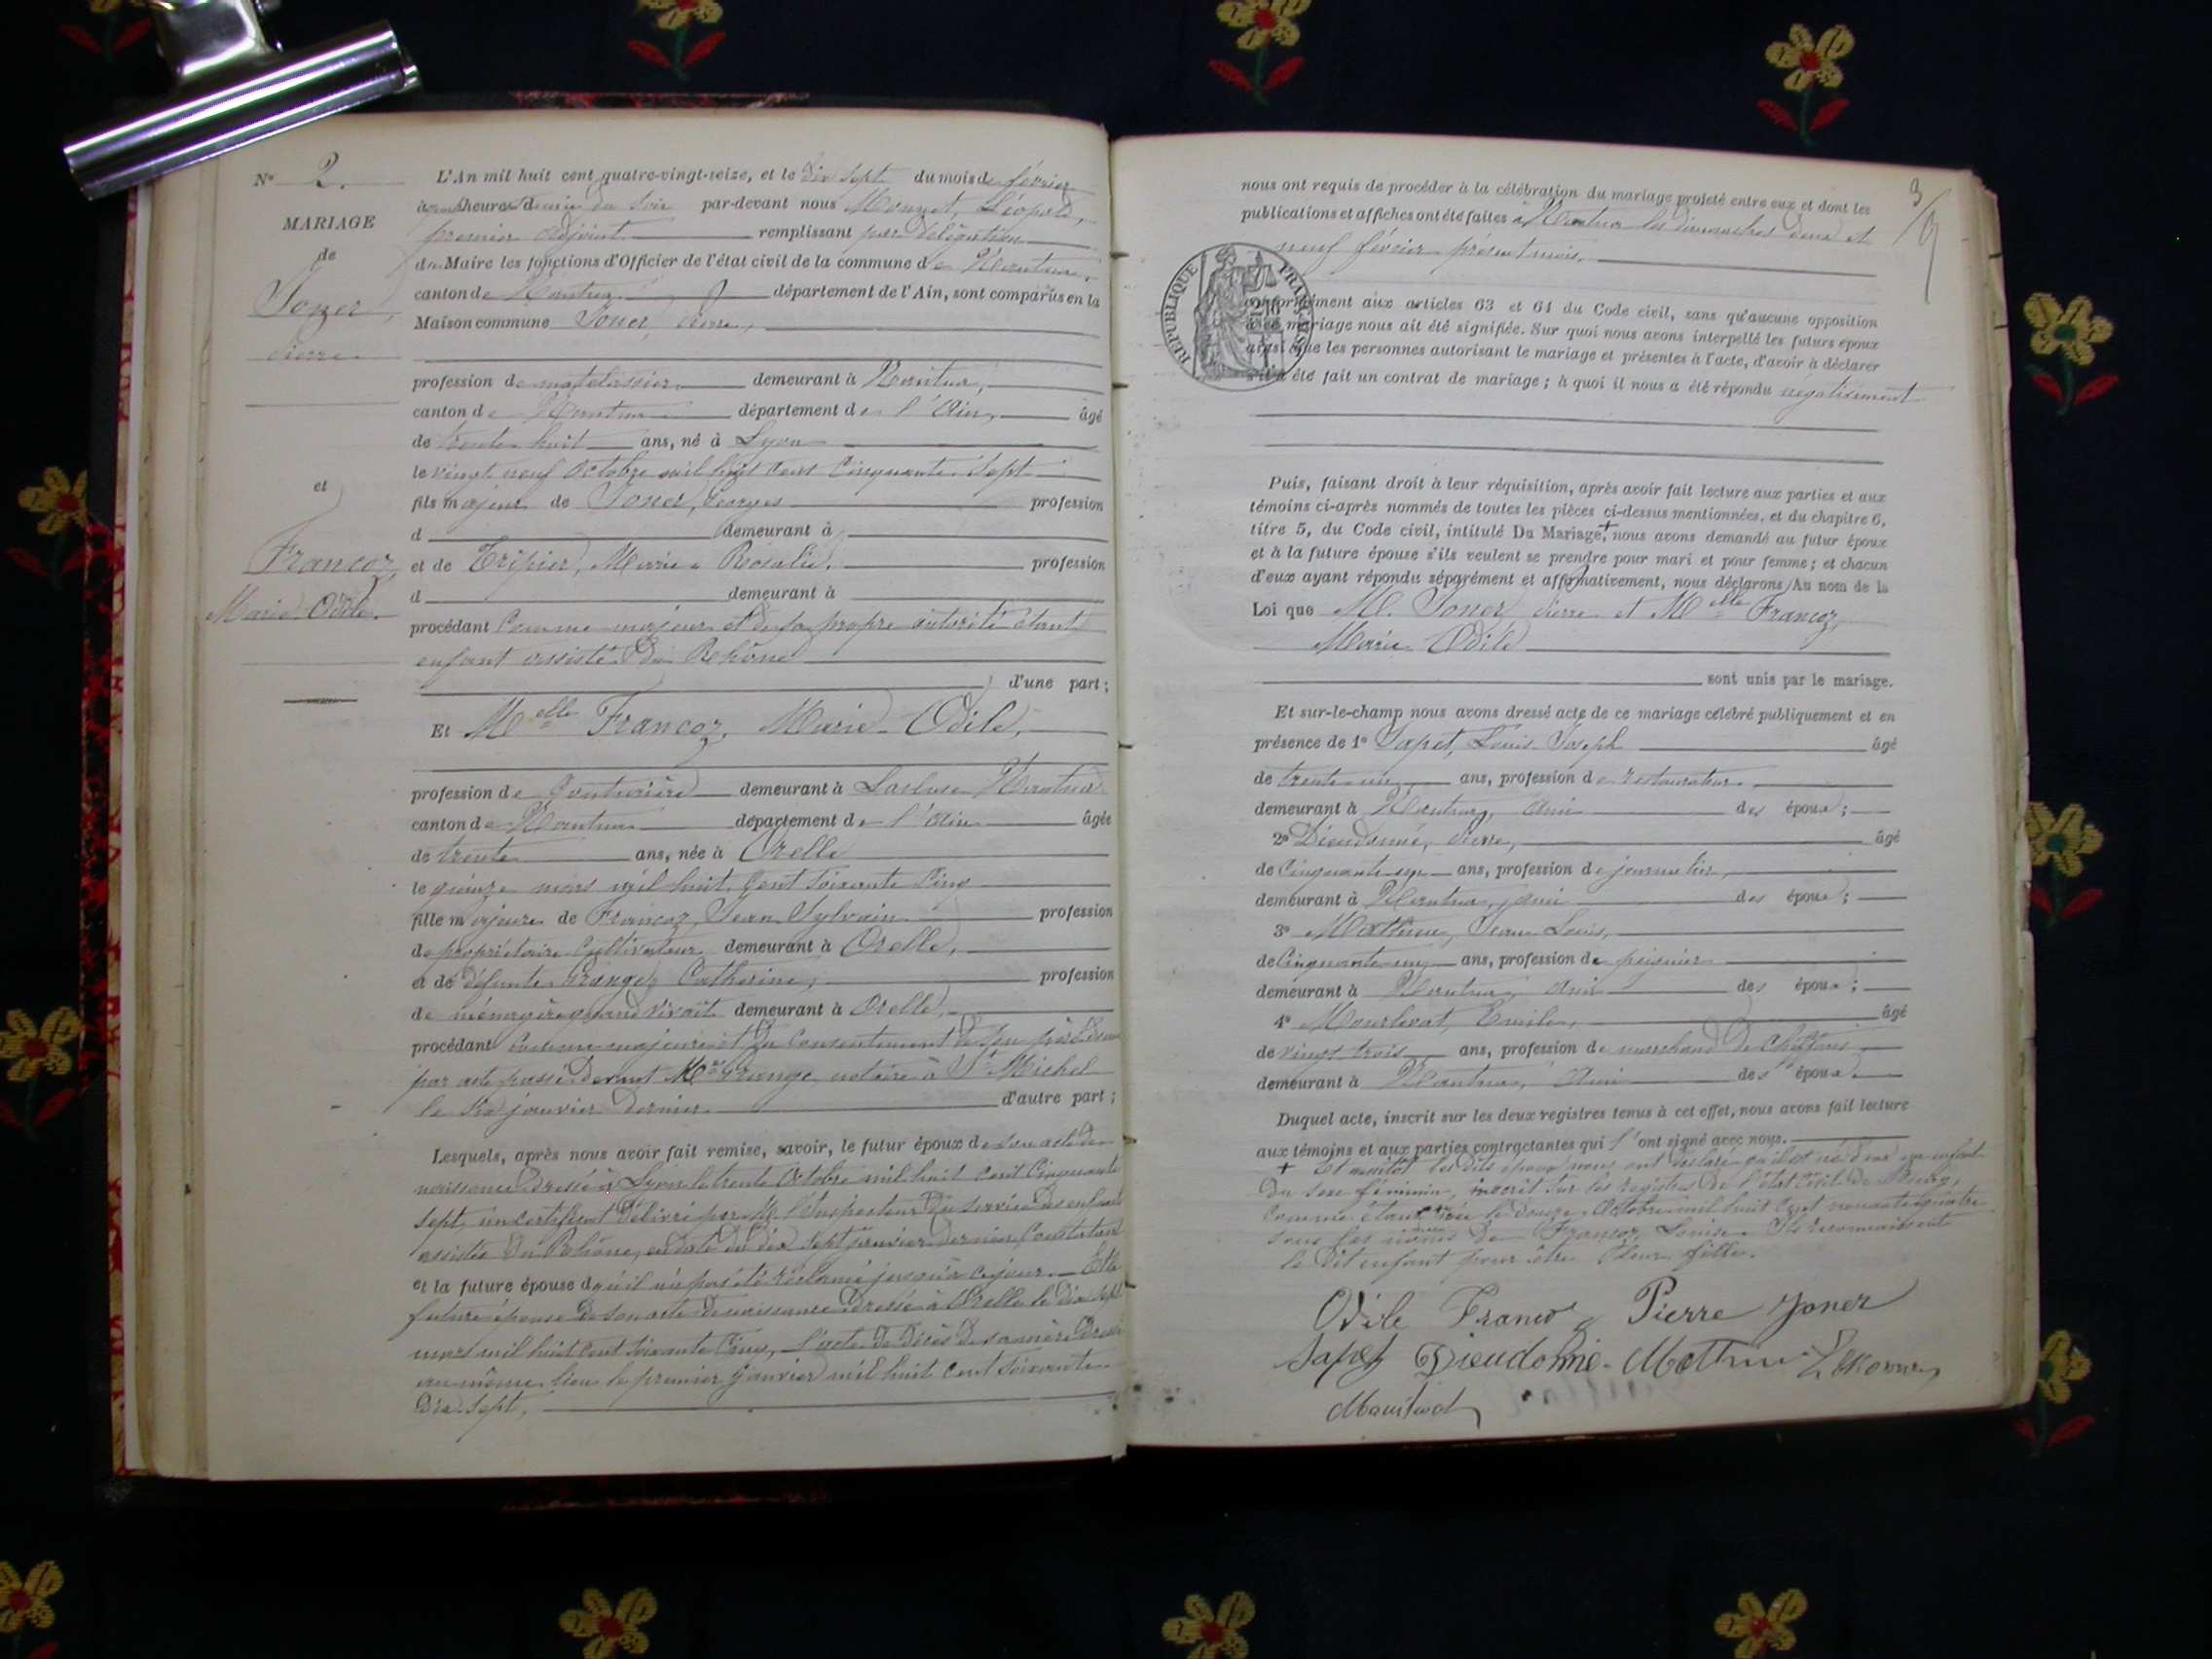 N° 2.
MARIAGE
de
Joner,
Pierre
et
Francoz,
Marie Odile.
L'An mil huit cent quatre-vingt-seize, et le dix sept du mois de février
à heures demie du soir par-devant nous Monnet, Léopold,
premier adjoint remplissant par délégation
du Maire les fonctions d'Officier de l'état civil de la commune de Nantua,
canton de Nantua département de l'Ain, sont comparus en la
Maison commune Joner, Pierre,
profession de matelassier demeurant à Nantua,
canton de Nantua département de l'Ain, âgé
de trente huit ans, né à Lyon
le vingt neuf Octobre mil huit cent cinquante sept
fils majeur de Joner, Georges profession
d demeurant à
et de Tripier, Marie Rosalie, profession
d demeurant à
procédant comme majeur et de sa propre autorité étant
enfant assisté du Rhône
d'une part;
Et Melle Francoz, Marie Odile,
profession de Couturière demeurant à Nantua
canton de Nantua département de l'Ain âgée
de trente ans, née à Orelle
le quinze mars mil huit cent soixante cinq
fille majeure de Francoz, Jean Sylvain profession
de propriétaire cultivateur demeurant à Orelle,
et de défunte Grange, Catherine, profession
de ménagère quand vivait demeurant à Orelle,
procédant comme majeure et du consentement de son père
par acte passé devant Me Grange, notaire à St Michel
le six janvier dernier d'autre part;
Lesquels, après nous avoir fait remise, savoir, le futur époux de son acte de
naissance dressé à Lyon le trente Octobre mil huit cent cinquante
sept, un certificat délivré par M. l'Inspecteur du service des enfants
assistés du Rhône, en date du dix sept janvier dernier, constatant
et la future épouse d qu'il n'a pas été réclamé jusqu'à ce jour. Et la
future épouse de son acte de naissance dressé à Orelle le dix sept
mars mil huit cent soixante cinq, l'acte de décès de sa mère dressé
au même lieu le premier janvier mil huit cent soixante
dix sept,
3
nous ont requis de procéder à la célébration du mariage projeté entre eux et dont les
publications et affiches ont été faites à Nantua les dimanches deux et
neuf février présent mois.
RÉPUBLIQUE FRANÇAISE
conformément aux articles 63 et 64 du Code civil, sans qu'aucune opposition
à ce mariage nous ait été signifiée. Sur quoi nous avons interpellé les futurs époux
ainsi que les personnes autorisant le mariage et présentes à l'acte, d'avoir à déclarer
s'il a été fait un contrat de mariage; à quoi il nous a été répondu négativement
Puis, faisant droit à leur réquisition, après avoir fait lecture aux parties et aux
témoins ci-après nommés de toutes les pièces ci-dessus mentionnées, et du chapitre 6,
titre 5, du Code civil, intitulé Du Mariage,+ nous avons demandé au futur époux
et à la future épouse s'ils veulent se prendre pour mari et pour femme; et chacun
d'eux ayant répondu séparément et affirmativement, nous déclarons Au nom de la
Loi que M. Joner Pierre et Melle Francoz,
Marie Odile
sont unis par le mariage.
Et sur-le-champ nous avons dressé acte de ce mariage célébré publiquement et en
présence de 1° Sapet, Louis Joseph âgé
de trente un ans, profession de restaurateur
demeurant à Nantua, ami des époux;
2° Dieudonné, Pierre, âgé
de Cinquante ans, profession de journalier,
demeurant à Nantua, ami des époux;
3° Mathieu, Jean Louis,
de Cinquante cinq ans, profession de peignier
demeurant à Nantua, ami des époux;
4° Mourlevat, Emile, âgé
de vingt trois ans, profession de marchand de chiffons
demeurant à Nantua, ami des époux.
Duquel acte, inscrit sur les deux registres tenus à cet effet, nous avons fait lecture
aux témoins et aux parties contractantes qui l'ont signé avec nous.
+ Et aussitôt les dits époux nous ont déclaré qu'il est né d'eux un enfant
du sexe féminin, inscrit sur les registres de l'état civil de Bourg,
comme étant née le douze Octobre mil huit cent nonante quatre
sous les noms de Francoz, Louise. Ils reconnaissent
le dit enfant pour être leur fille.
Odile Francoz Pierre Joner
Sapet Dieudonné Mathieu L Monnet
Mourlevat